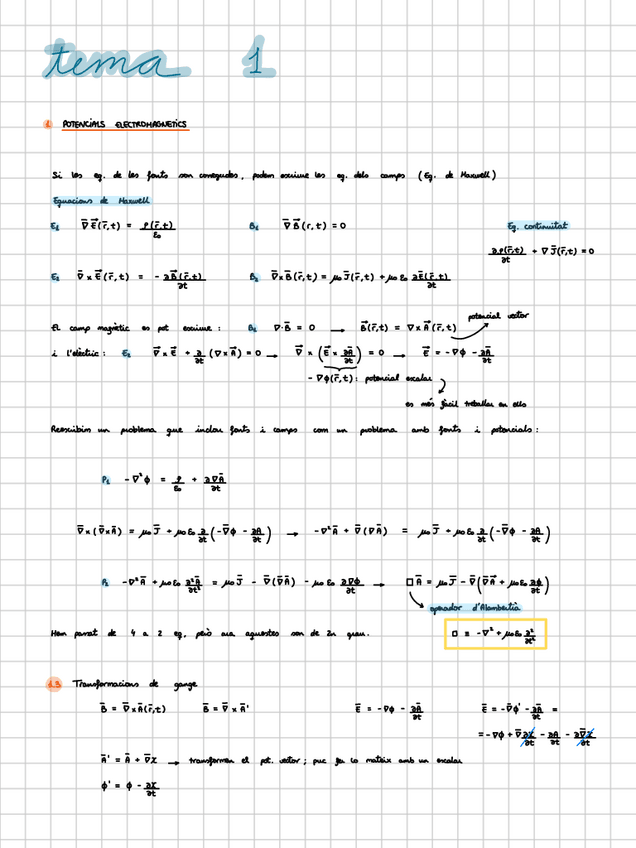 tema 1
1 POTENCIALS ELECTROMAGNETICS
Si les eq. de les fonts son conegudes, podem escriure les eq. dels camps (Eq. de Maxwell)
Equacions de Maxwell
E₁ ∇̄ E⃗(r̄,t) = ρ(r̄,t)/ε₀ B₁ ∇̄ B⃗(r,t) = 0 Eq. continuitat
∂ρ(r̄,t)/∂t + ∇ J̄(r̄,t) = 0
E₂ ∇̄ × E⃗(r̄,t) = - ∂B⃗(r̄,t)/∂t B₂ ∇̄×B̄(r̄,t) = μ₀ J̄(r̄,t) + μ₀ ε₀ ∂Ē(r̄,t)/∂t
potencial vector
El camp magnètic es pot escriure : B₁ ∇·B̄ = 0 → B⃗(r̄,t) = ∇×A⃗(r̄,t)
i l'elèctric : E₂ ∇⃗ × E⃗ + ∂/∂t (∇×A⃗) = 0 → ∇⃗ × (E⃗ + ∂A̅/∂t) = 0 → E⃗ = -∇ϕ - ∂A̅/∂t
- ∇ϕ(r̄,t) : potencial escalar
es més fàcil treballar en ells
Reescribim un problema que inclou fonts i camps com un problema amb fonts i potencials :
P₁ -∇²ϕ = ρ/ε₀ + ∂∇A̅/∂t
∇̄×(∇̄×A̅) = μ₀ J̄ + μ₀ ε₀ ∂/∂t (-∇̄ϕ - ∂A̅/∂t) → -∇²A̅ + ∇̄(∇A̅) = μ₀ J̄ + μ₀ ε₀ ∂/∂t (-∇̄ϕ - ∂A̅/∂t)
P₂ -∇²A̅ + μ₀ε₀ ∂²A̅/∂t² = μ₀ J̄ - ∇̄(∇A̅) - μ₀ ε₀ ∂∇ϕ/∂t → □ A̅ = μ₀ J̄ - ∇̄(∇̄A̅ + μ₀ε₀ ∂ϕ/∂t)
operador d'Alambertià
Hem passat de 4 a 2 eq, però ara aquestes son de 2n grau. □ ≡ -∇² + μ₀ε₀ ∂²/∂t²
1.3 Transformacions de gauge
B̄ = ∇̄×A̅(r̄,t) B̄ = ∇̄ × A̅' Ē = -∇ϕ - ∂A̅/∂t Ē = -∇̄ϕ' - ∂A̅/∂t =
= -∇ϕ + ∇̄∂χ/∂t - ∂A/∂t - ∂∇̄χ/∂t
A̅' = A̅ + ∇̄χ → transformen el pot. vector ; puc fer lo mateix amb un escalar
ϕ' = ϕ - ∂χ/∂t